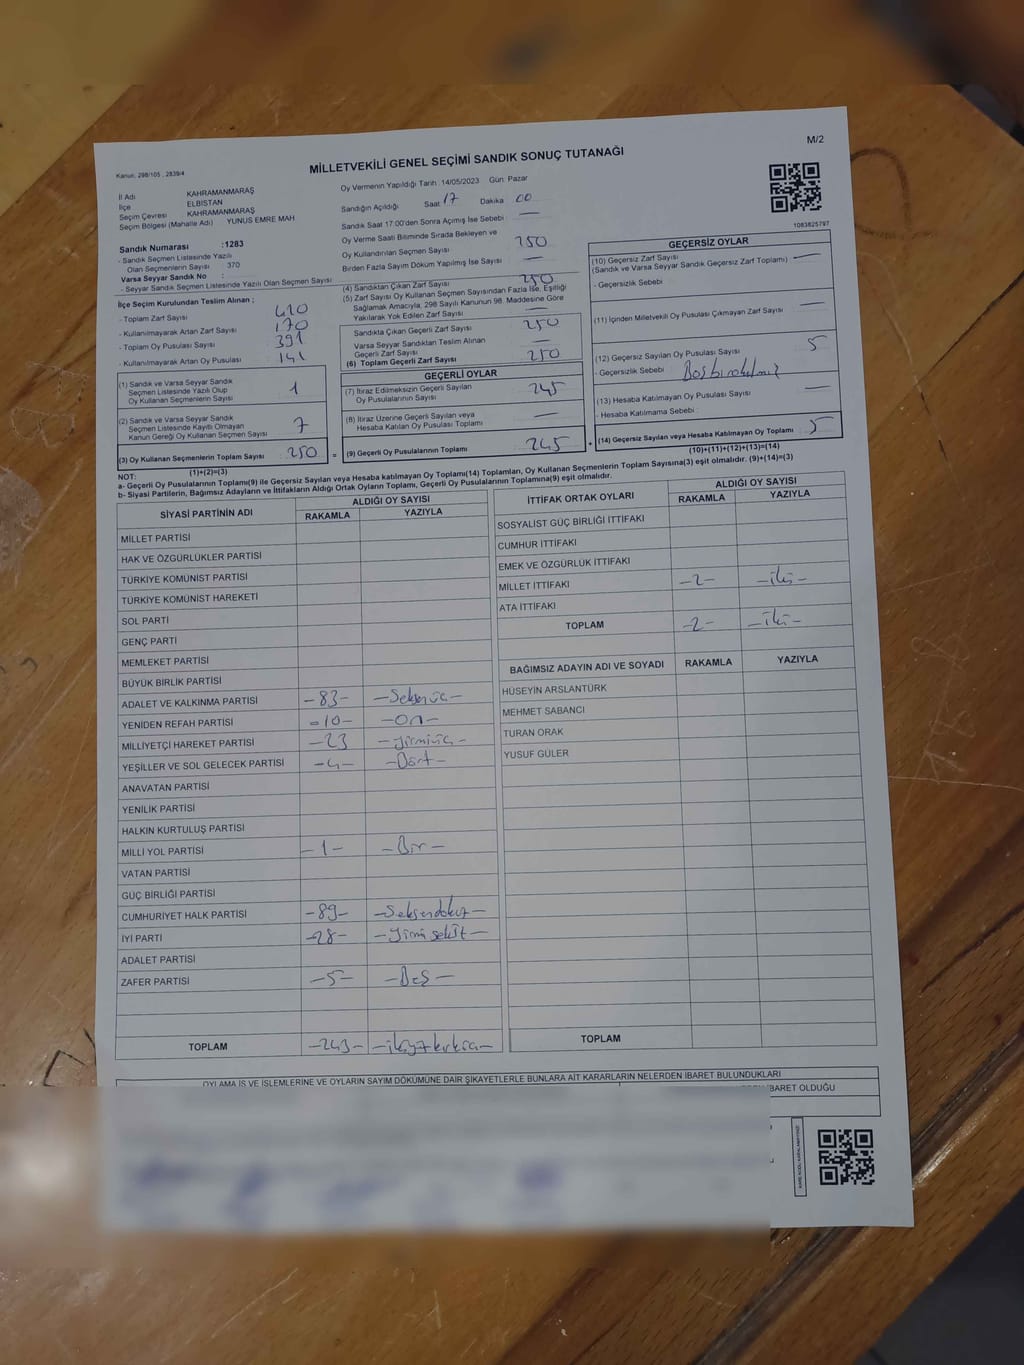 M/2
Kanun: 298/105 , 2839/4
MİLLETVEKİLİ GENEL SEÇİMİ SANDIK SONUÇ TUTANAĞI
İl Adı KAHRAMANMARAŞ
İlçe ELBİSTAN
Seçim Çevresi KAHRAMANMARAŞ
Seçim Bölgesi (Mahalle Adı) YUNUS EMRE MAH
Sandık Numarası :1283
- Sandık Seçmen Listesinde Yazılı
Olan Seçmenlerin Sayısı 370
Varsa Seyyar Sandık No :
- Seyyar Sandık Seçmen Listesinde Yazılı Olan Seçmen Sayısı
İlçe Seçim Kurulundan Teslim Alınan ;
- Toplam Zarf Sayısı 420
- Kullanılmayarak Artan Zarf Sayısı 170
- Toplam Oy Pusulası Sayısı 391
- Kullanılmayarak Artan Oy Pusulası 141
(1) Sandık ve Varsa Seyyar Sandık
Seçmen Listesinde Yazılı Olup
Oy Kullanan Seçmenlerin Sayısı 1
(2) Sandık ve Varsa Seyyar Sandık
Seçmen Listesinde Kayıtlı Olmayan
Kanun Gereği Oy Kullanan Seçmen Sayısı 7
(3) Oy Kullanan Seçmenlerin Toplam Sayısı 250
(1)+(2)=(3)
Oy Vermenin Yapıldığı Tarih :14/05/2023 Gün: Pazar
Sandığın Açıldığı Saat 17 Dakika 00
Sandık Saat 17:00'den Sonra Açımış İse Sebebi —
Oy Verme Saati Bitiminde Sırada Bekleyen ve
Oy Kullandırılan Seçmen Sayısı 250
Birden Fazla Sayım Döküm Yapılmış İse Sayısı —
(4) Sandıktan Çıkan Zarf Sayısı 250
(5) Zarf Sayısı Oy Kullanan Seçmen Sayısından Fazla İse, Eşitliği
Sağlamak Amacıyla, 298 Sayılı Kanunun 98. Maddesine Göre
Yakılarak Yok Edilen Zarf Sayısı —
Sandıkta Çıkan Geçerli Zarf Sayısı 250
Varsa Seyyar Sandıktan Teslim Alınan
Geçerli Zarf Sayısı —
(6) Toplam Geçerli Zarf Sayısı 250
GEÇERLİ OYLAR
(7) İtiraz Edilmeksizin Geçerli Sayılan
Oy Pusulalarının Sayısı 245
(8) İtiraz Üzerine Geçerli Sayılan veya
Hesaba Katılan Oy Pusulası Toplamı —
= (9) Geçerli Oy Pusulalarının Toplamı 245 +
1083825797
GEÇERSİZ OYLAR
(10) Geçersiz Zarf Sayısı
(Sandık ve Varsa Seyyar Sandık Geçersiz Zarf Toplamı) —
- Geçersizlik Sebebi
(11) İçinden Milletvekili Oy Pusulası Çıkmayan Zarf Sayısı —
(12) Geçersiz Sayılan Oy Pusulası Sayısı 5
- Geçersizlik Sebebi Boş bırakılmış
(13) Hesaba Katılmayan Oy Pusulası Sayısı —
- Hesaba Katılmama Sebebi
(14) Geçersiz Sayılan veya Hesaba Katılmayan Oy Toplamı 5
(10)+(11)+(12)+(13)=(14)
NOT:
a- Geçerli Oy Pusulalarının Toplamı(9) ile Geçersiz Sayılan veya Hesaba katılmayan Oy Toplamı(14) Toplamları, Oy Kullanan Seçmenlerin Toplam Sayısına(3) eşit olmalıdır. (9)+(14)=(3)
b- Siyasi Partilerin, Bağımsız Adayların ve İttifakların Aldığı Ortak Oyların Toplamı, Geçerli Oy Pusulalarının Toplamına(9) eşit olmalıdır.
SİYASİ PARTİNİN ADI ALDIĞI OY SAYISI
RAKAMLA YAZIYLA
MİLLET PARTİSİ
HAK VE ÖZGÜRLÜKLER PARTİSİ
TÜRKİYE KOMÜNİST PARTİSİ
TÜRKİYE KOMÜNİST HAREKETİ
SOL PARTİ
GENÇ PARTİ
MEMLEKET PARTİSİ
BÜYÜK BİRLİK PARTİSİ
ADALET VE KALKINMA PARTİSİ -83- -Seksenüç-
YENİDEN REFAH PARTİSİ -10- -On-
MİLLİYETÇİ HAREKET PARTİSİ -23 -yirmiüç-
YEŞİLLER VE SOL GELECEK PARTİSİ -4- -Dört-
ANAVATAN PARTİSİ
YENİLİK PARTİSİ
HALKIN KURTULUŞ PARTİSİ
MİLLİ YOL PARTİSİ -1- -Bir-
VATAN PARTİSİ
GÜÇ BİRLİĞİ PARTİSİ
CUMHURİYET HALK PARTİSİ -89- -Seksendokuz-
İYİ PARTİ -28- -Yirmi sekiz-
ADALET PARTİSİ
ZAFER PARTİSİ -5- -Beş-
TOPLAM -243- -ikiyüzkırküç-
İTTİFAK ORTAK OYLARI ALDIĞI OY SAYISI
RAKAMLA YAZIYLA
SOSYALİST GÜÇ BİRLİĞİ İTTİFAKI
CUMHUR İTTİFAKI
EMEK VE ÖZGÜRLÜK İTTİFAKI
MİLLET İTTİFAKI -2- -iki-
ATA İTTİFAKI
TOPLAM -2- -iki-
BAĞIMSIZ ADAYIN ADI VE SOYADI RAKAMLA YAZIYLA
HÜSEYİN ARSLANTÜRK
MEHMET SABANCI
TURAN ORAK
YUSUF GÜLER
TOPLAM
OYLAMA İŞ VE İŞLEMLERİNE VE OYLARIN SAYIM DÖKÜMÜNE DAİR ŞİKAYETLERLE BUNLARA AİT KARARLARIN NELERDEN İBARET BULUNDUKLARI
İBARET OLDUĞU